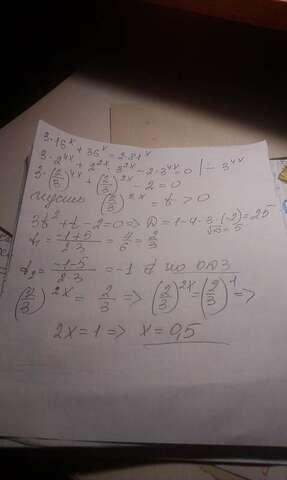 3·16^x + 36^x = 2·81^x
3·2^{4x} + 2^{2x}·3^{2x} - 2·3^{4x} = 0 | ÷ 3^{4x}
3·(2/3)^{4x} + (2/3)^{2x} - 2 = 0
(2/3)^{2x} = t > 0
3t² + t - 2 = 0 => D = 1 - 4·3·(-2) = 25
√D = 5
t₁ = (-1+5)/(2·3) = 4/6 = 2/3
t₂ = (-1-5)/(2·3) = -1 ∉ по ОДЗ
(2/3)^{2x} = 2/3 => (2/3)^{2x} = (2/3)^1 =>
2x = 1 => x = 0,5